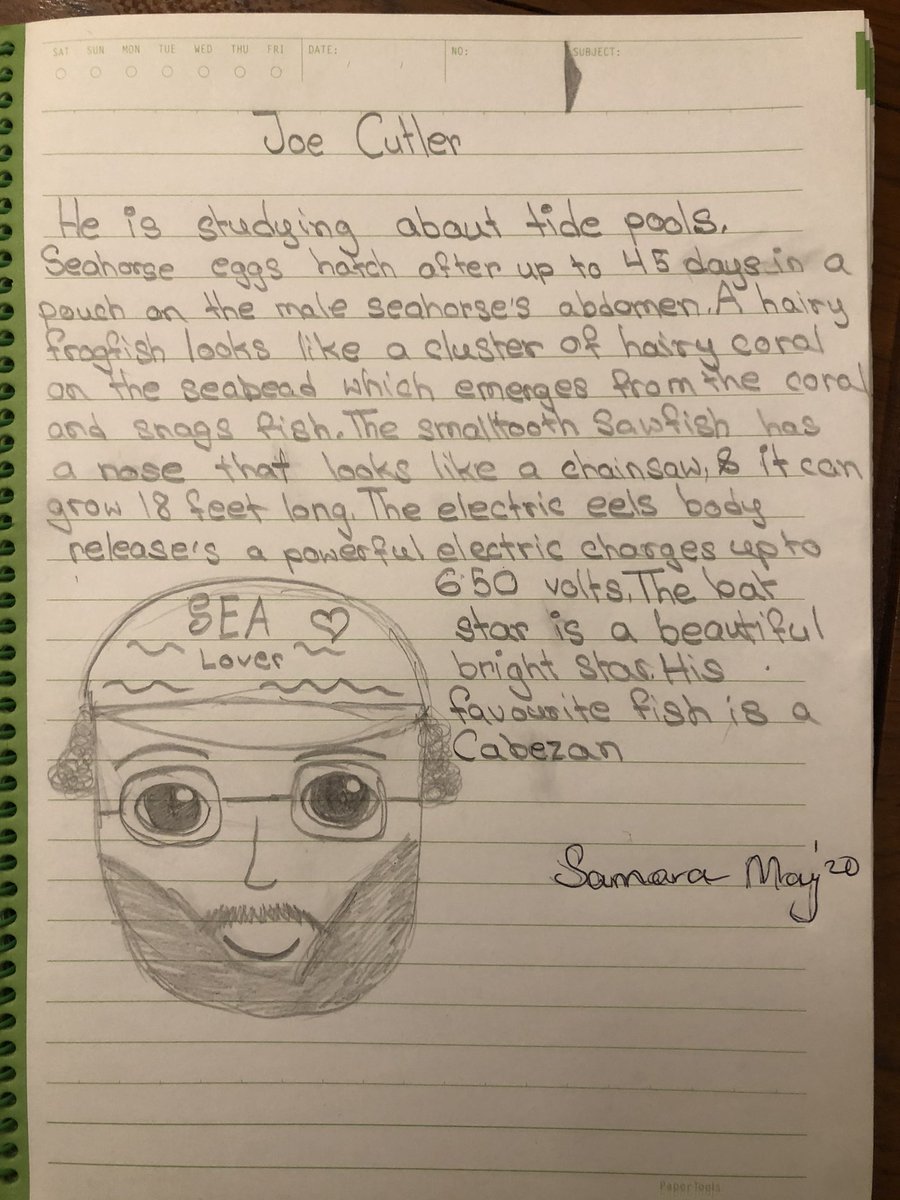 SAT SUN MON TUE WED THU FRI DATE: / / NO: SUBJECT:
Joe Cutler
He is studying about tide pools.
Seahorse eggs hatch after up to 45 days in a
pouch on the male seahorse's abdomen. A hairy
frogfish looks like a cluster of hairy coral
on the seabead which emerges from the coral
and snags fish. The smalltooth Sawfish has
a nose that looks like a chainsaw, & it can
grow 18 feet long. The electric eels body
release's a powerful electric charges upto
650 volts. The bat
star is a beautiful
bright star. His
favourite fish is a
Cabezan
SEA
Lover
Samara May'20
PaperTools